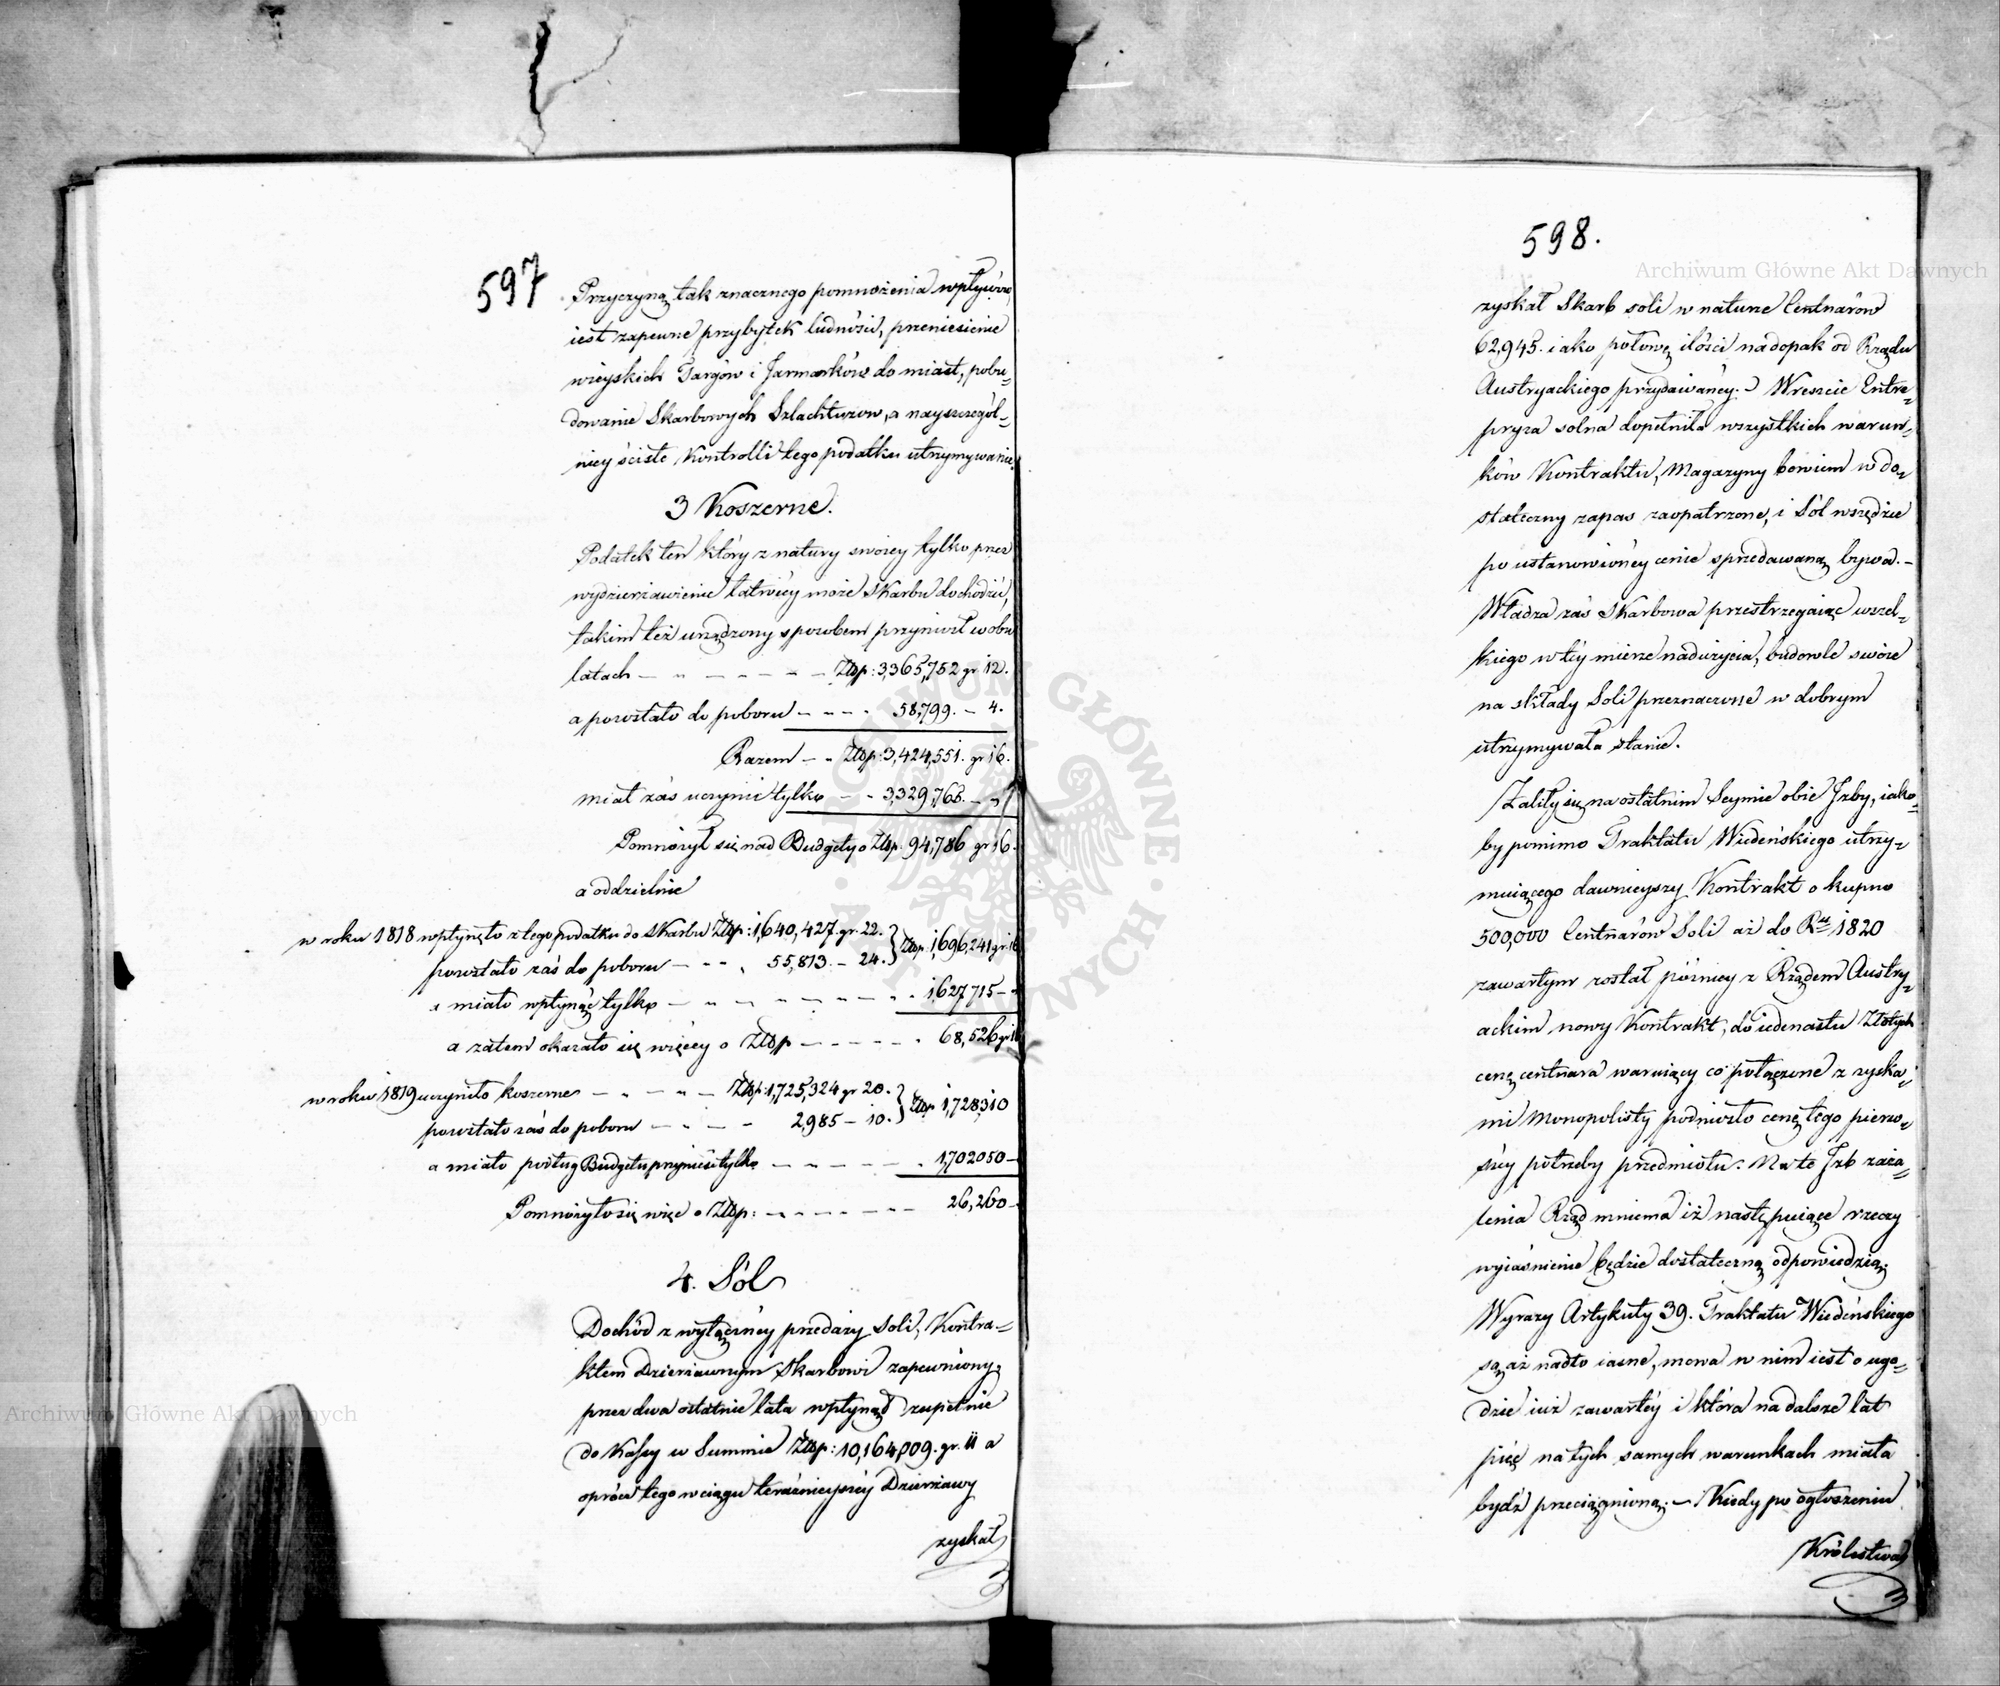 597
Przyczyną tak znacznego pomnożenia wpływów
iest zapewne przybytek ludności, przeniesienie
wieyskich Targów i Jarmarków do miast, pobu=
dowanie Skarbowych Szlachtuzow, a nayszczegól=
niey ścisłe Kontrolli tego podatku utrzymywanie.
3 Koszerne.
Podatek ten który z natury swoiey tylko przez
wydzierżawienie łatwiey może Skarbu dochodzić,
takim też urządzony sposobem przyniosł w obu
latach - - - - - - Złłp: 3,365,752 gr 12.
a pozostało do poboru - - - - 58,799. - 4.
Razem - - Złłp: 3,424,551. gr 16.
miał zaś uczynić tylko - - 3,329,765. - -
Pomnożył się nad Budgety o Złłp. 94,786 gr 16.
a oddzielnie
w roku 1818 wpłynęło z tego podatku do Skarbu Złłp: 1,640,427. gr. 22. } Złłp. 1,696,241 gr 16
pozostało zaś do poboru - - - 55,813. - 24.
a miało wpłynąć tylko - - - - - - - - 1627715 -
a zatem okazało się więcey o Złłp - - - - - 68,526 gr 16
w roku 1819 uczyniło koszerne - - - - Złłp: 1,725,324 gr 20. } Złłp 1,728,310
pozostało zaś do poboru - - - - 2,985 - 10.
a miało podług Budgetu przynieść tylko - - - - - 1,702050 -
Pomnożyło się więc o Złłp: - - - - - - - 26,260 -
4. Sól
Dochód z wyłączney przedaży Soli, Kontra=
ktem Dzierżawnym Skarbowi zapewniony,
przez dwa ostatnie lata wpłynął zupełnie
do Kassy w Summie Złłp: 10,164,009. gr. 11 a
oprócz tego w ciągu teraźnieyszéy Dzierżawy
zyskał
598.
zyskał Skarb soli w naturze Centnarów
62,945. iako połowę ilości nadopak od Rządu
Austryackiego przydawaney. - Wreszcie Entre=
pryza solna dopełniła wszystkich warun=
ków Kontraktu, Magazyny bowiem w do=
stateczny zapas zaopatrzone, i Sól wszędzie
po ustanowionéy cenie sprzedawaną bywa. -
Władza zaś Skarbowa przestrzegaiąc wszel=
kiego w téy mierze nadużycia, budowle swoie
na składy Soli przeznaczone w dobrym
utrzymywała stanie.
Żaliły się na ostatnim Seymie obie Jzby, iako=
by pomimo Traktatu Wiedeńskiego utrzy=
muiącego dawnieyszy Kontrakt o kupno
500,000 Centnarów Soli aż do Rku 1820
zawartym został późniey z Rządem Austry=
ackim nowy Kontrakt, do iedenastu Złotych
cenę centnara waruiący co połączone z zyska=
mi Monopolisty podniosło cenę tego pierw=
széy potrzeby przedmiotu. Na te Jzb zaża=
lenia Rząd mniema iż następuiące rzeczy
wyiaśnienie będzie dostateczną odpowiedzią.
Wyrazy Artykuły 39. Traktatu Wiedeńskiego
są aż nadto iasne, mowa w nim iest o ugo=
dzie iuż zawartéy i która na dalsze lat
pięć na tych samych warunkach miała
bydź przeciągnioną. - Kiedy po ogłoszeniu
Królestwa
Archiwum Główne Akt Dawnych
Archiwum Główne Akt Dawnych
ARCHIWUM GŁÓWNE AKT DAWNYCH